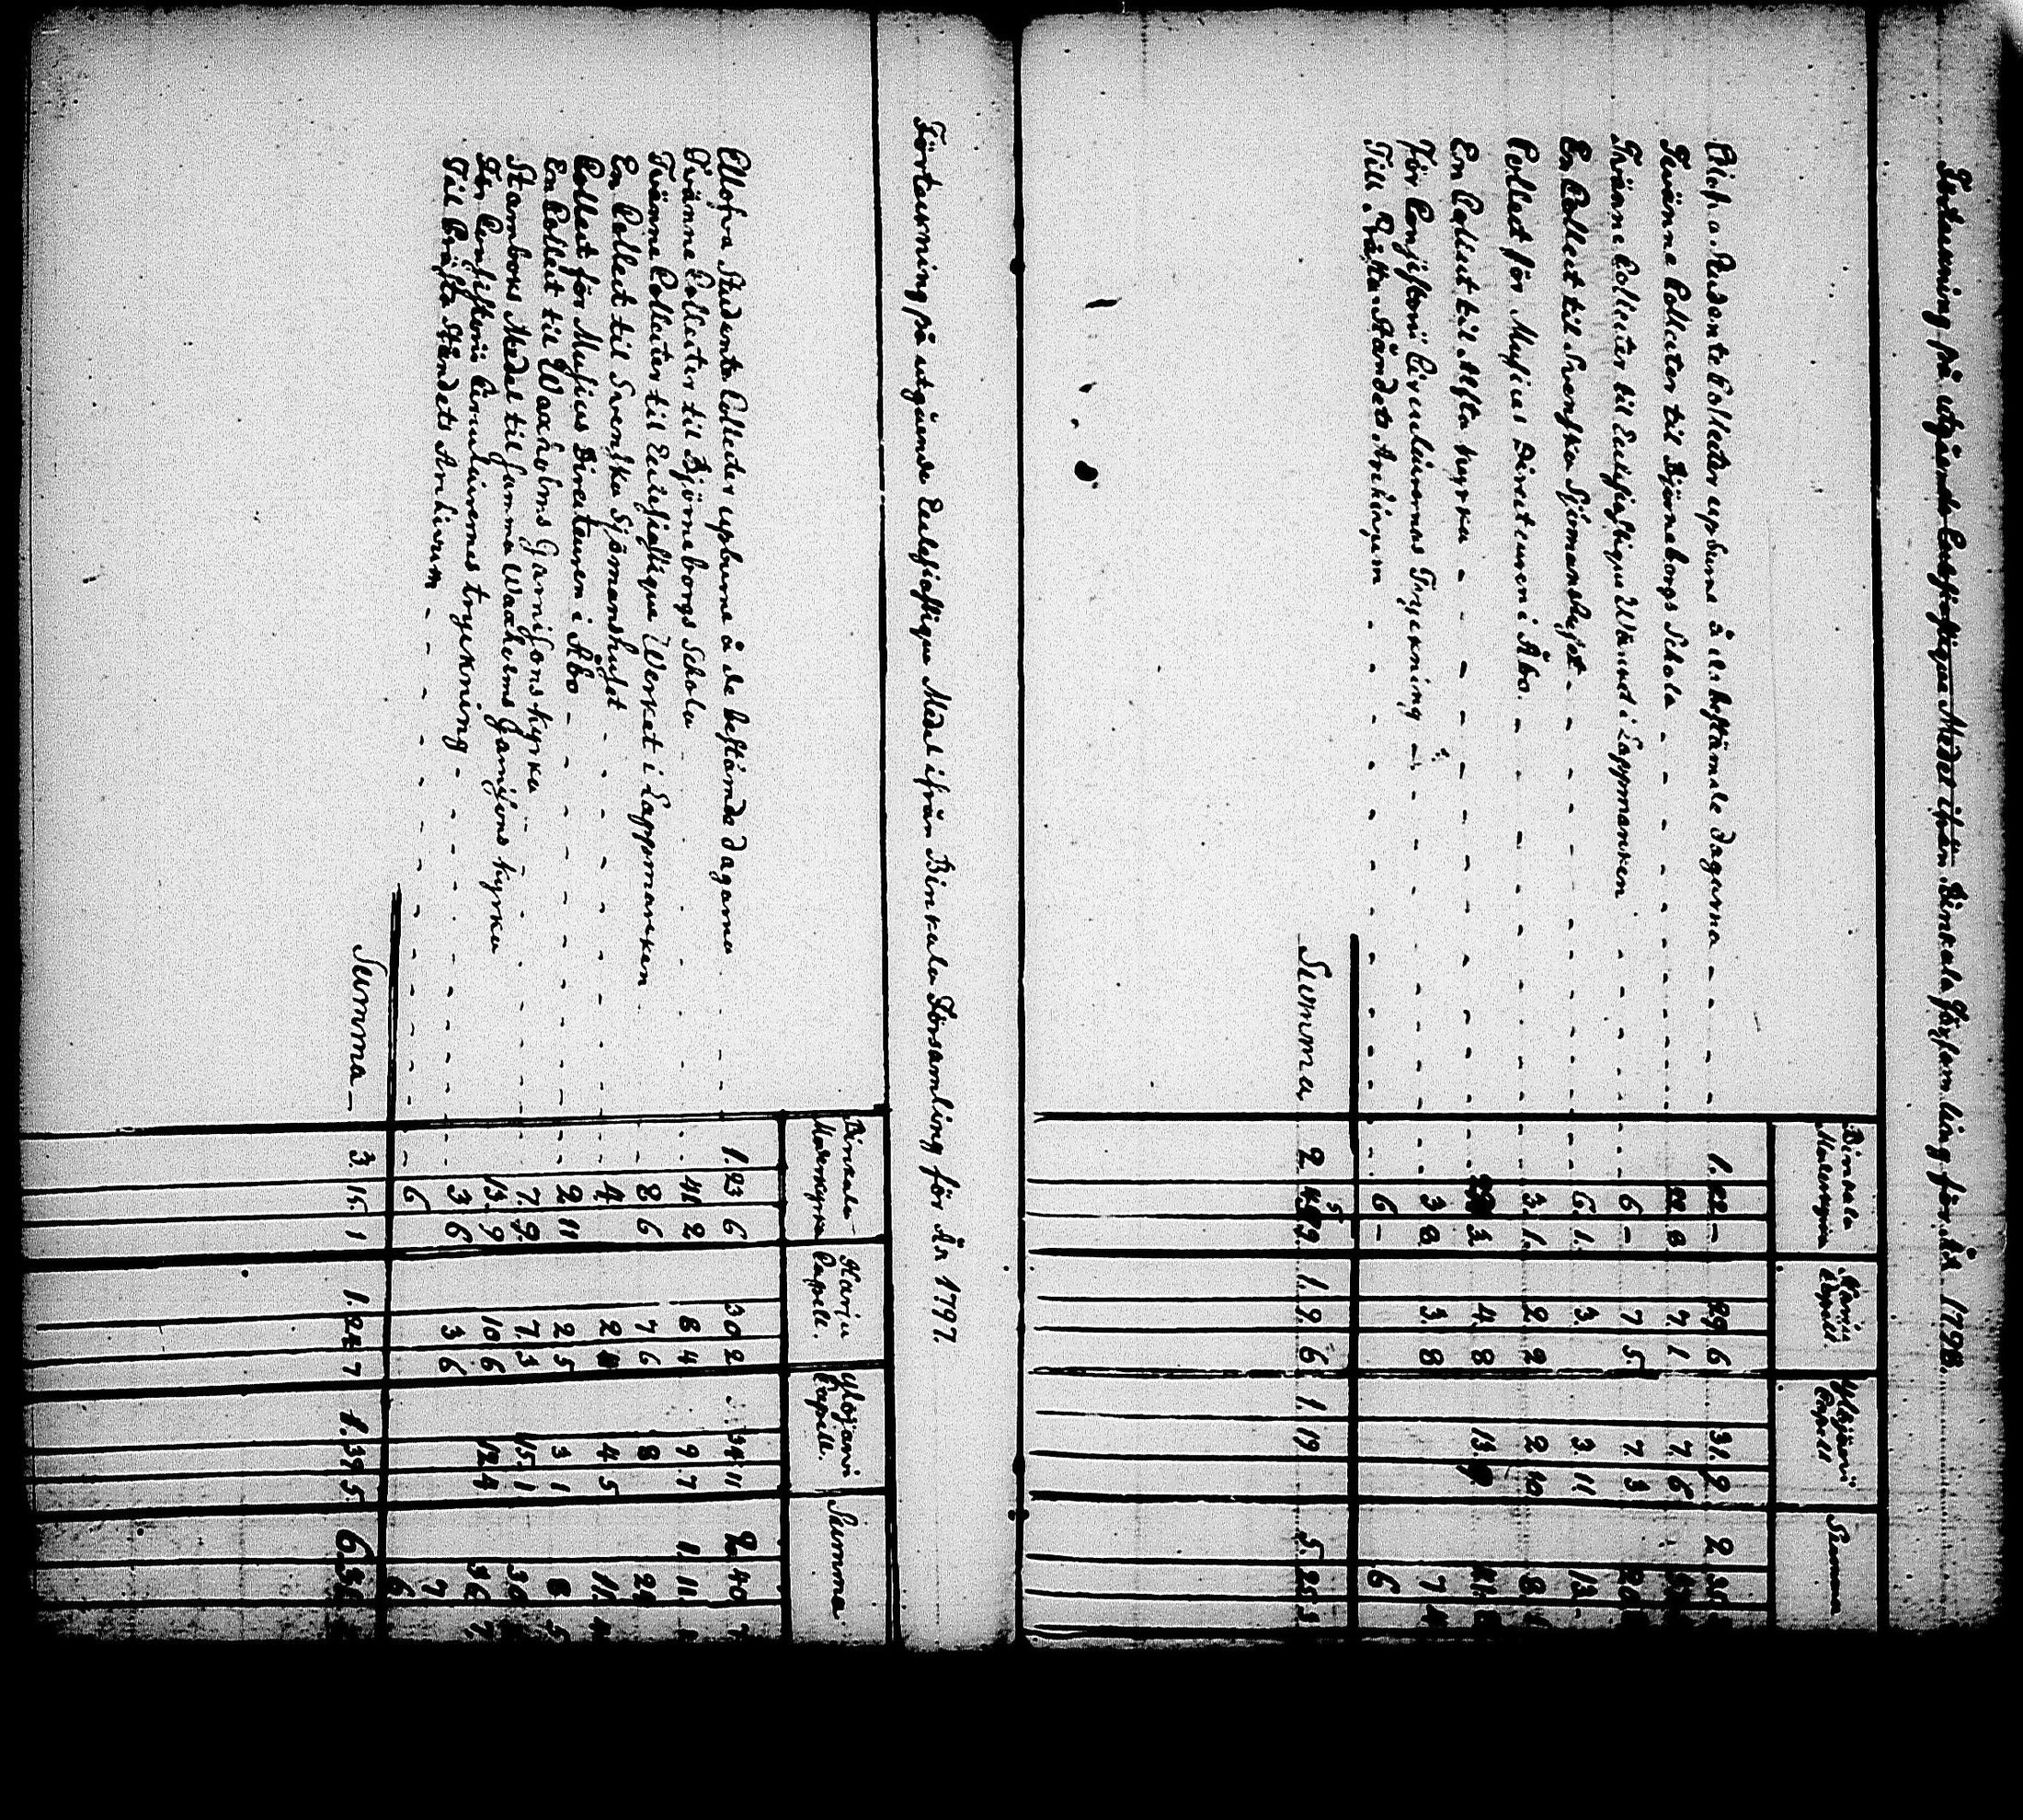 Förtecning på utgående Ecclesiastique Medel ifrån Birkala Församling för År 1798.
Birkala Moderkyrka Harju Capell. Ylöjärvi Capell Summa
Elofva Studente Collecter upburne å de bestämde dagarna - - - 1. 22 - 29 6 31. 9 2
Tvänne Collecter til Björneborgs Schola - - - 22. 8 7. 1 7. 6
Tvänne Collecter til Ecclesiastique Wärket i Lappmarken - - - 6 - 7 5. 7. 3
En Collect til Svenska Sjömanshuset - - - 6. 1. 3. 3. 11
Collect för Musices Directeuren i Åbo. - - - 3. 1. 2. 2 2 10 8
En Collect til Alfta kyrka - - - 3 4. 8 13. 9.
För Consistorii Circulairernas Tryckning - - - 3 8. 3. 8 7
Till Prästa Ståndets Archivum - - - 6 - 6
Summa 2. 9. 1. 9. 6 1. 19 5. 25
Förtecning på utgående Ecclesiastique Medel ifrån Birkala Församling för År 1797.
Birkala Moderkyrka Harju Capell. Ylöjärvi Capell. Summa
Ellofva Studente Collecter upburne å de bestämde dagarna - - 1. 23 6 30 2 34. 11 2. 40
Tvänne Collecter til Björneborgs Schola - - 41 2 8 4 9. 7 1. 11.
Tvänne Collecter til Ecclesiastique Werket i Lappmarcken - 8 6 7 6 8 24
En Collect til Svenska Sjömanshuset - - - 4. 2 4. 5 11. 4
Collect för Musices Directeuren i Åbo - - - 2 11 2 5 3 1 8 5
En Collect til Waxholms Garnisons kyrka - - - 7. 9. 7. 3 15. 1 30
Stamboks Medel til samma Waxholms Garnisons kyrka - 13. 9 10 6 12. 4 36 7
För Consistorii Circulairernes tryckning - - - 3 6 3 6 7
Till Prästa Ståndets Archivum - - - 6 6
Summa - 3. 15. 1 1. 7 1. 39. 5. 6.